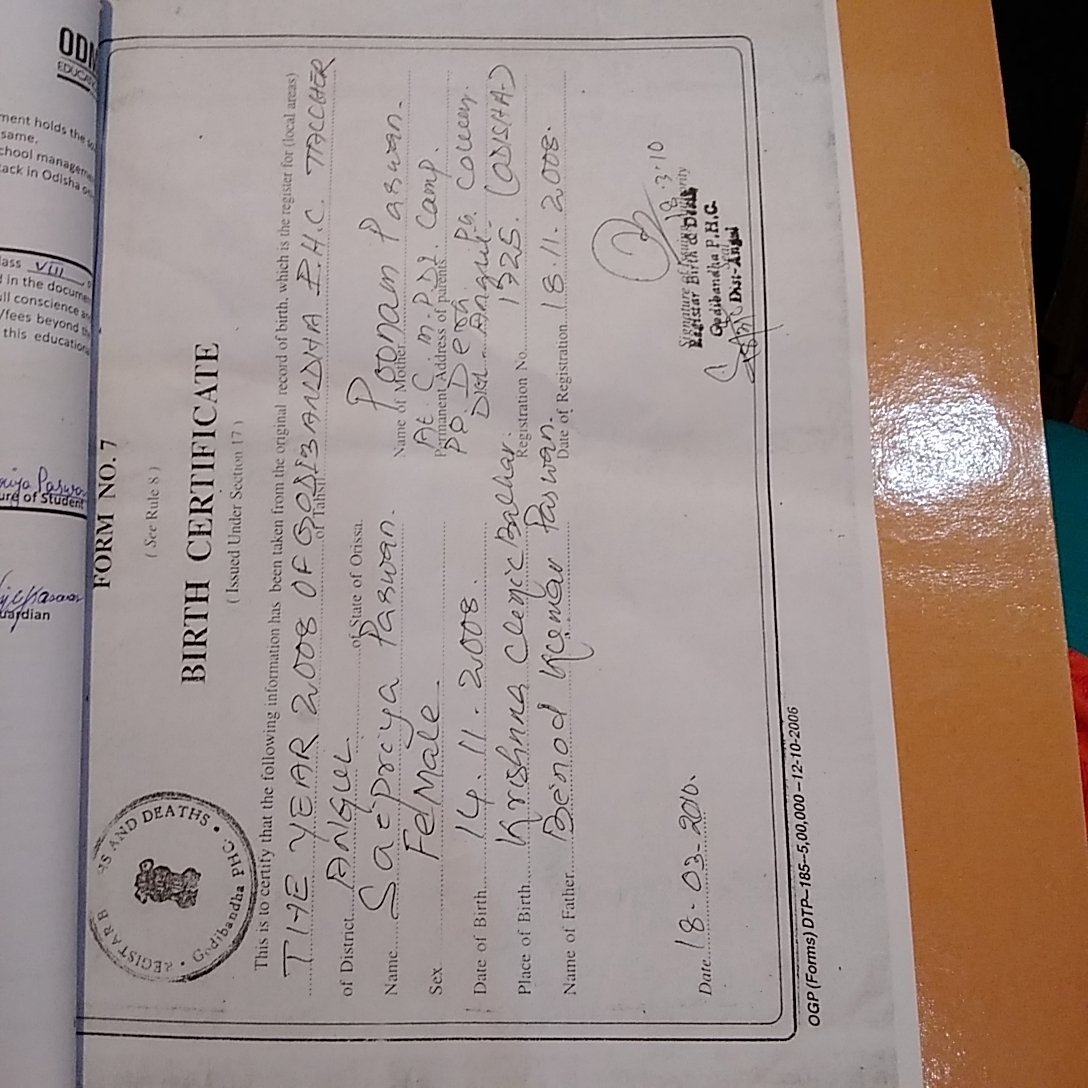 ODM
EDUCA
ment holds the
same.
chool managem
ack in Odisha
ass VIII
d in the docume
ll conscience
/fees beyond
this educationa
ure of Student
uardian
FORM NO. 7
( See Rule 8 )
BIRTH CERTIFICATE
( Issued Under Section 17 )
This is to certify that the following information has been taken from the original record of birth, which is the register for (local areas)
THE YEAR 2008 OF GODIBANDHA P.H.C. TALCHER
of Tahsil
of District ANGUL of State of Orissa.
Name Saipriya Paswan. Name of Mother Poonam Paswan.
Sex FeMale Permanent Address of parents At C.M.P.D.I. Camp.
PO. Dera
Dist- Angul. (ODISHA)
Date of Birth 14.11.2008. Registration No. 1725.
Place of Birth Krishna Clinic Date of Registration 18.11.2008.
Name of Father Benod Kumar Paswan.
Date 18-03-2010.
18.3.10
Registar Birth & Death
Godibandha P.H.C.
Dist-Angul
REGISTAR BIRTHS AND DEATHS
Godibandha PHC
OGP (Forms) DTP–185–5,00,000 –12-10-2006